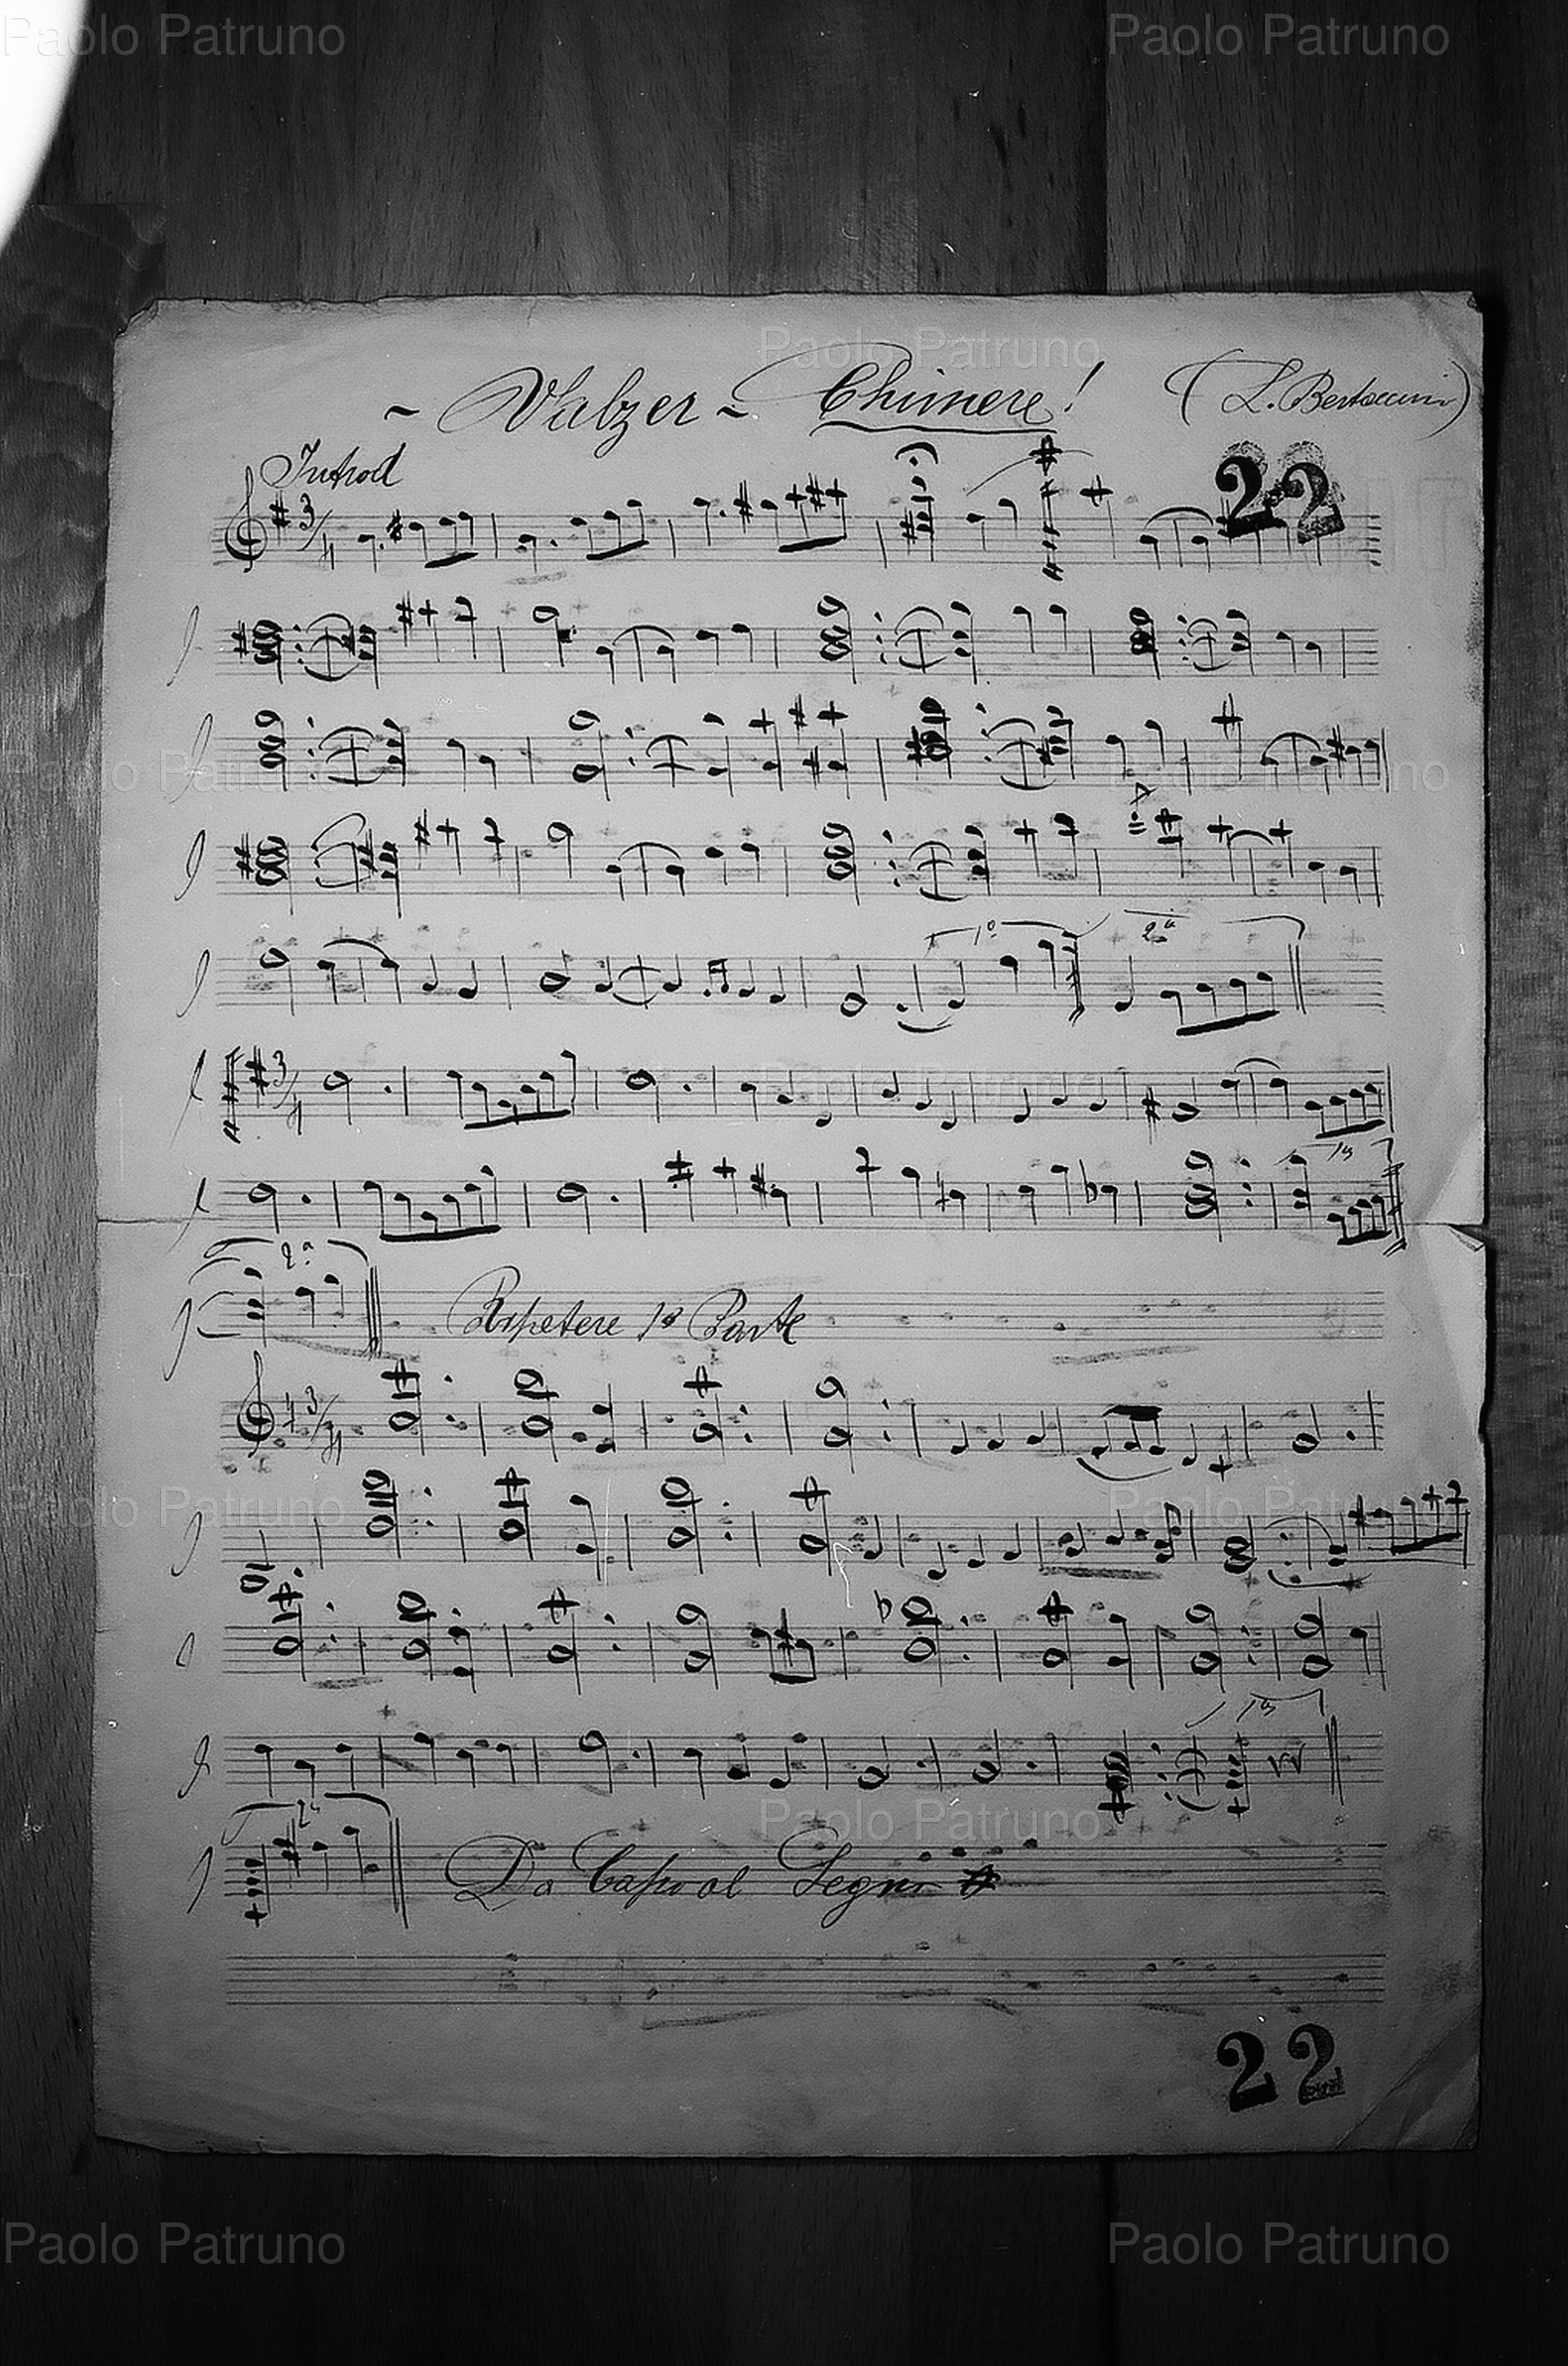 Paolo Patruno Paolo Patruno
Paolo Patruno
~ Valzer ~ Chimere! (L.
Introd
22
3/4
Paolo Patruno Paolo Patruno
1ª 2ª
3/4
Paolo Patruno
1ª
2ª
Repetere 1ª Parte
3/4
Paolo Patruno Paolo Patruno
1ª
Paolo Patruno
2ª
Da Capo al Segno
22
Paolo Patruno Paolo Patruno